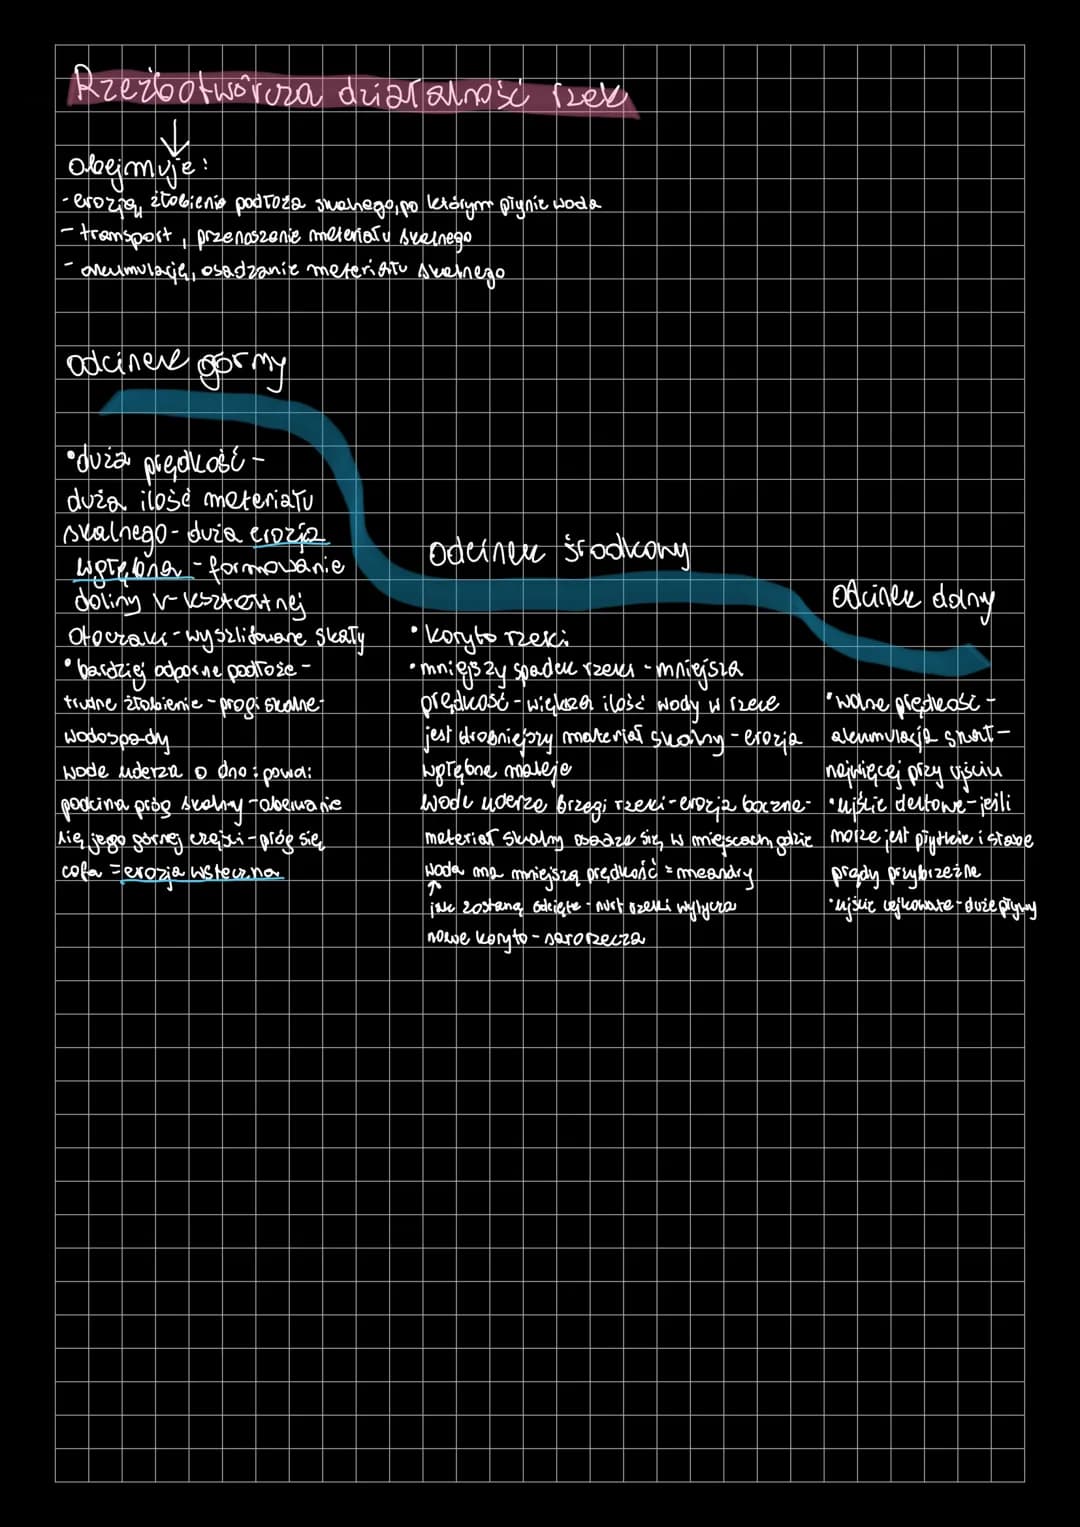 Rzeźbotwórcza działalność rzek
obejmuje:
- erozję, żłobienie podłoża skalnego, po którym płynie woda
- transport, przenoszenie materiału skalnego
- akumulację, osadzanie materiału skalnego
odcinek górny
•duża prędkość -
duża ilość materiału
skalnego - duża erozja
wgłębna - formowanie
doliny V-kształtnej
Otoczaki - wyszlifowane skały
• bardziej odporne podłoże -
trudne żłobienie - progi skalne -
wodospady
woda uderza o dno i powoi
podcina próg skalny - oberwanie
się jego górnej części - próg się
cofa = erozja wsteczna
odcinek środkowy
• koryto rzeki
• mniejszy spadek rzeki - mniejsza
prędkość - większa ilość wody w rzece
jest drobniejszy materiał skalny - erozja
wgłębna maleje
woda uderza brzegi rzeki - erozja boczna -
materiał skalny osadza się w miejscach gdzie
woda ma mniejszą prędkość = meandry
jak zostaną odcięte - nurt rzeki wytycza
nowe koryto - starorzecza
odcinek dolny
• wolna prędkość -
akumulacja
najwięcej przy ujściu
• ujście deltowe - jeśli
morze jest płytkie i słabe
prądy przybrzeżne
• ujście lejkowate - duże pływy